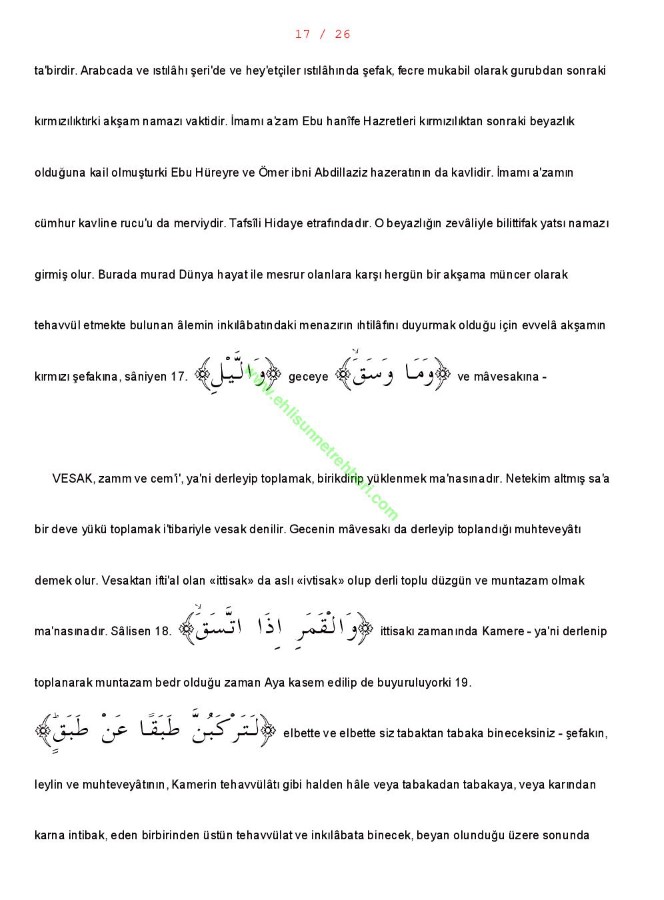 17 / 26
ta'birdir. Arabcada ve ıstılâhı şeri'de ve hey'etçiler ıstılâhında şefak, fecre mukabil olarak gurubdan sonraki
kırmızılıktırki akşam namazı vaktidir. İmamı a'zam Ebu hanîfe Hazretleri kırmızılıktan sonraki beyazlık
olduğuna kail olmuşturki Ebu Hüreyre ve Ömer ibni Abdillaziz hazeratının da kavlidir. İmamı a'zamın
cümhur kavline rucu'u da merviydir. Tafsîli Hidaye etrafındadır. O beyazlığın zevâliyle bilittifak yatsı namazı
girmiş olur. Burada murad Dünya hayat ile mesrur olanlara karşı hergün bir akşama müncer olarak
tehavvül etmekte bulunan âlemin inkılâbatındaki menazırın ıhtilâfını duyurmak olduğu için evvelâ akşamın
kırmızı şefakına, sâniyen 17. ﴿وَالَّيْلِ﴾ geceye ﴿وَمَا وَسَقَۙ﴾ ve mâvesakına -
www.ehlisunnetrehberi.com
VESAK, zamm ve cem'ı', ya'ni derleyip toplamak, birikdirip yüklenmek ma'nasınadır. Netekim altmış sa'a
bir deve yükü toplamak i'tibariyle vesak denilir. Gecenin mâvesakı da derleyip toplandığı muhteveyâtı
demek olur. Vesaktan ifti'al olan «ittisak» da aslı «ivtisak» olup derli toplu düzgün ve muntazam olmak
ma'nasınadır. Sâlisen 18. ﴿وَالْقَمَرِ اِذَا اتَّسَقَۙ﴾ ittisakı zamanında Kamere - ya'ni derlenip
toplanarak muntazam bedr olduğu zaman Aya kasem edilip de buyuruluyorki 19.
﴿لَتَرْكَبُنَّ طَبَقًا عَنْ طَبَقٍۜ﴾ elbette ve elbette siz tabaktan tabaka bineceksiniz - şefakın,
leylin ve muhteveyâtının, Kamerin tehavvülâtı gibi halden hâle veya tabakadan tabakaya, veya karından
karna intibak, eden birbirinden üstün tehavvülat ve inkılâbata binecek, beyan olunduğu üzere sonunda